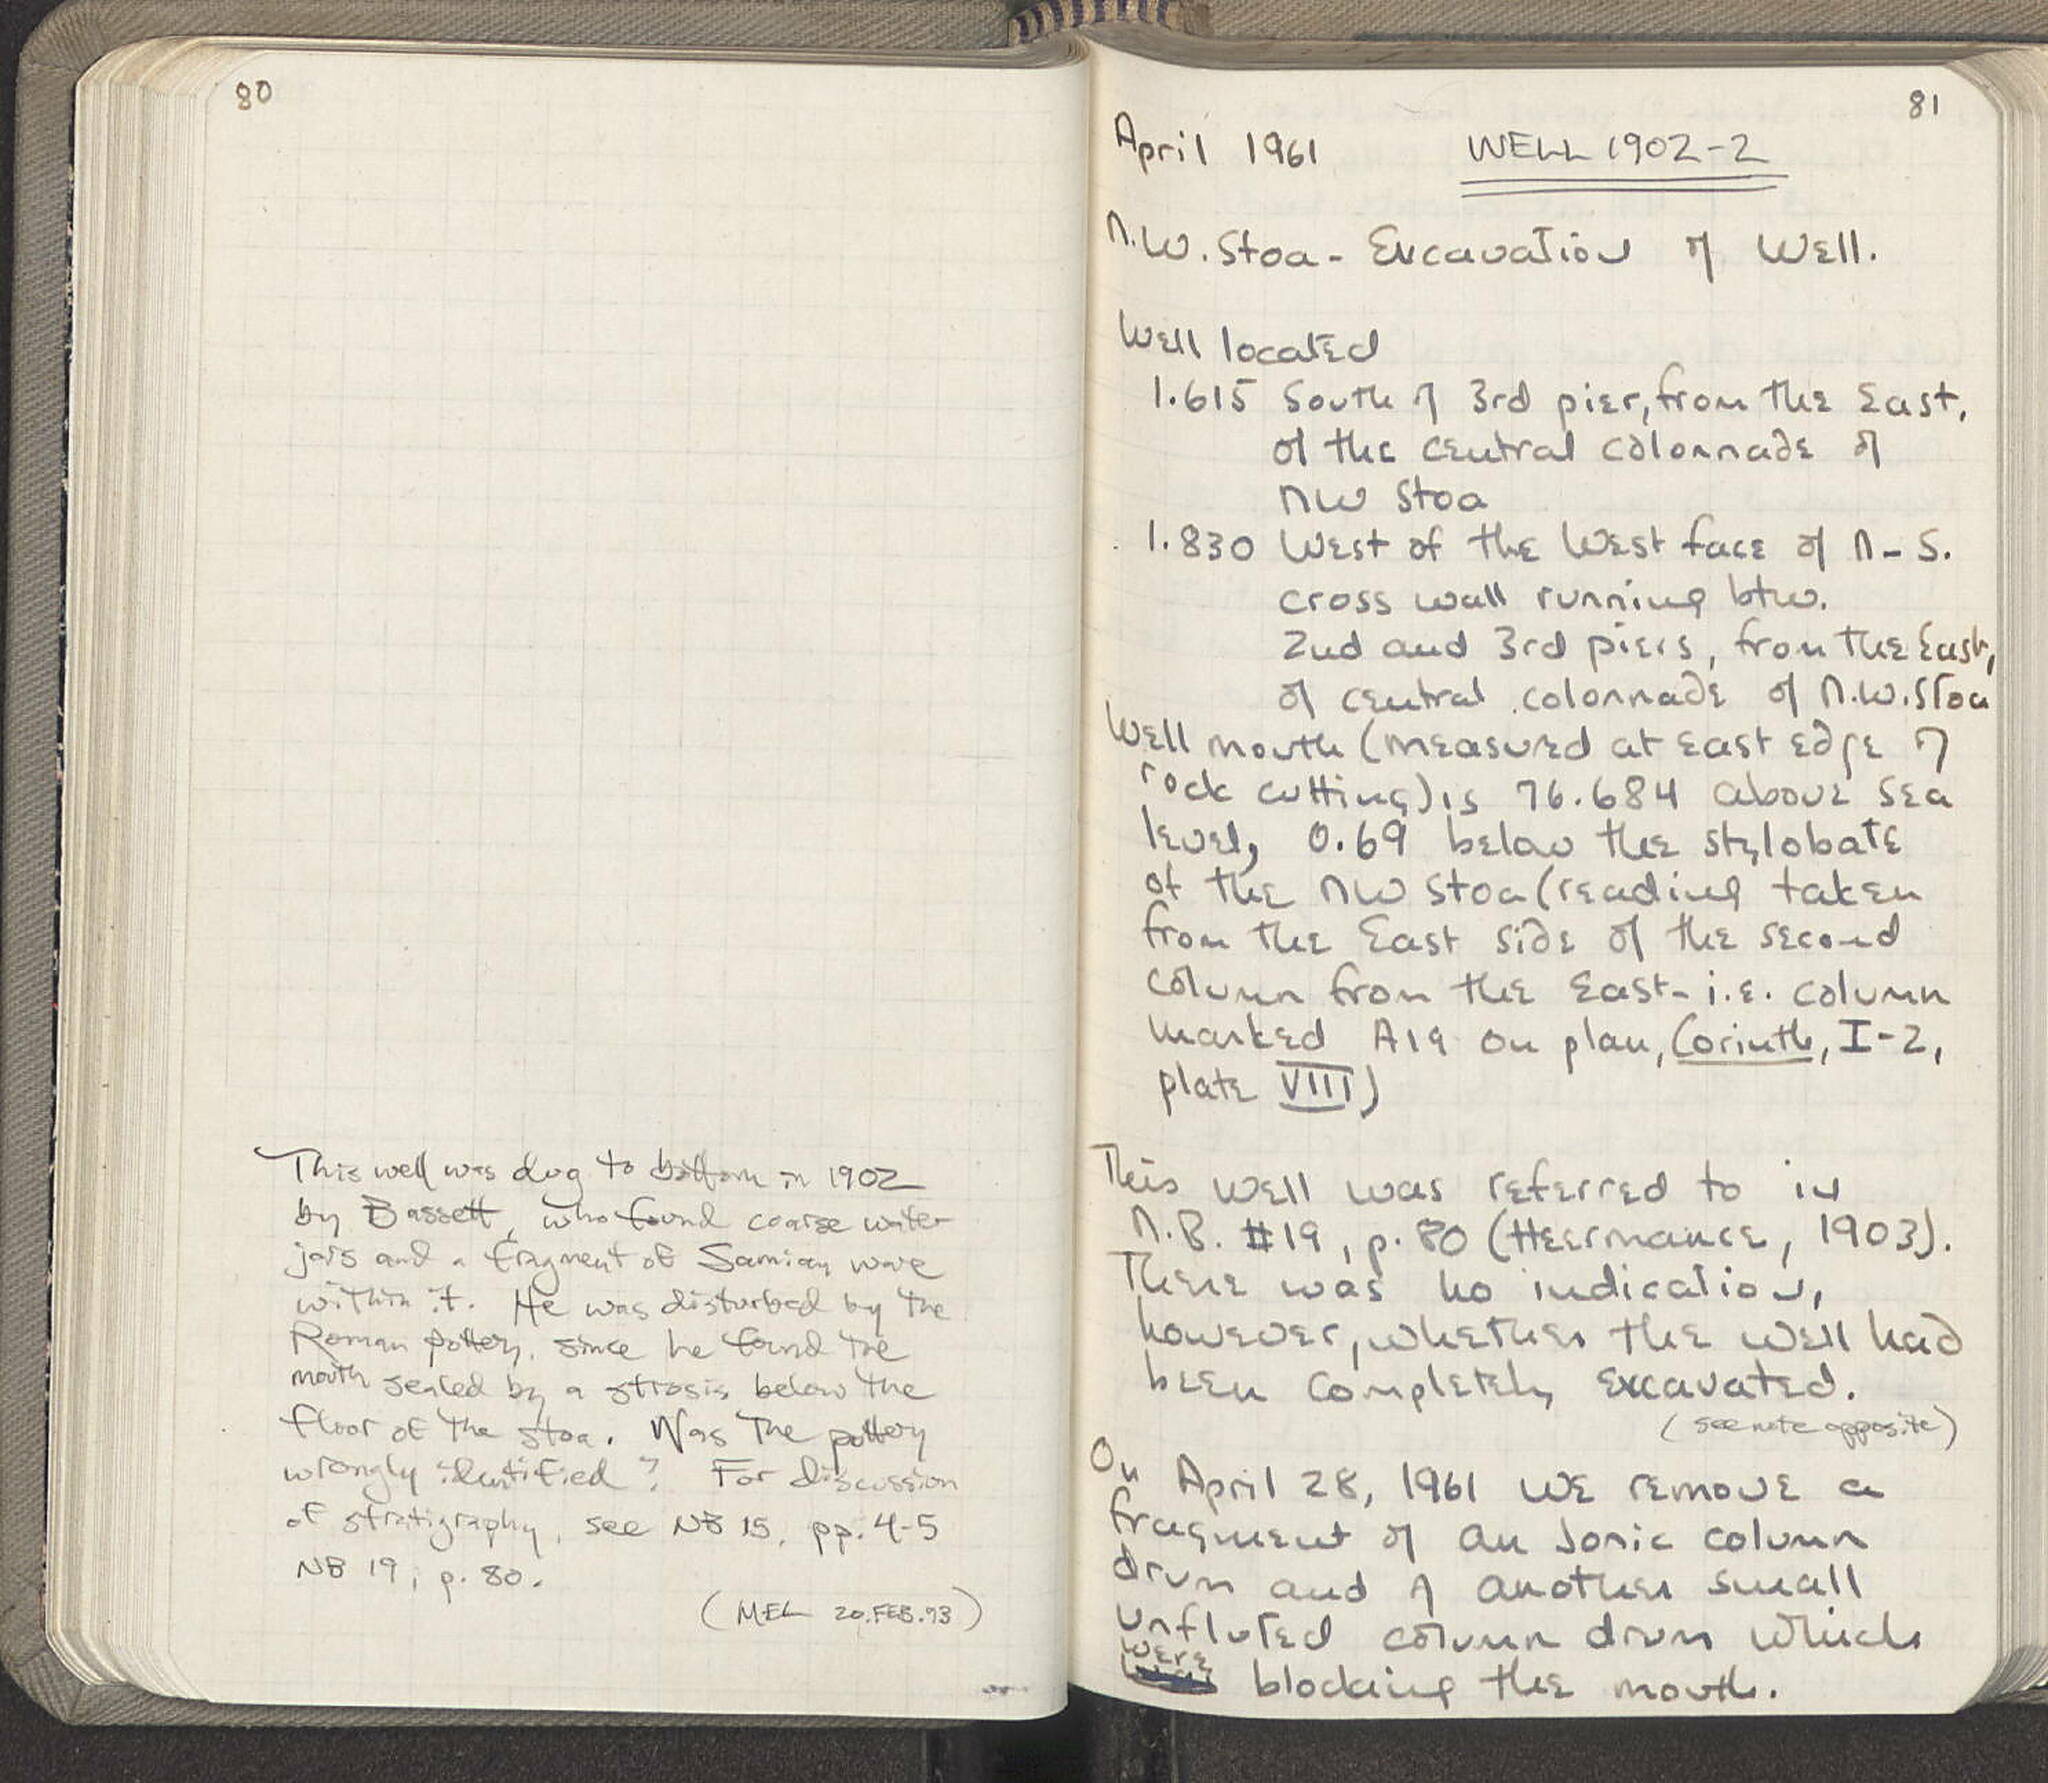 80
This well was dug to bottom in 1902
by Bassett, who found coarse water
jars and a fragment of Samian ware
within it. He was disturbed by the
Roman pottery, since he found the
mouth sealed by a strosis below the
floor of the stoa. Was the pottery
wrongly identified? For discussion
of stratigraphy, see NB 15, pp. 4-5
NB 19, p. 80.
(MEL 20.FEB.93)
81
April 1961 WELL 1902-2
N.W. Stoa - Excavation of Well.
Well located
1.615 South of 3rd pier, from the East,
of the central colonnade of
NW Stoa
1.830 West of the West face of N-S.
cross wall running btw.
2nd and 3rd piers, from the East,
of central colonnade of N.W. Stoa
Well mouth (measured at east edge of
rock cutting) is 76.684 above sea
level, 0.69 below the stylobate
of the NW Stoa (reading taken
from the East side of the second
column from the East - i.e. column
marked A19 on plan, Corinth, I-2,
plate VIII)
This well was referred to in
N.B. #19, p. 80 (Heermance, 1903).
There was no indication,
however, whether the well had
been completely excavated.
(see note opposite)
On April 28, 1961 we remove a
fragment of an Ionic column
drum and of another small
unfluted column drum which
were
blocking the mouth.